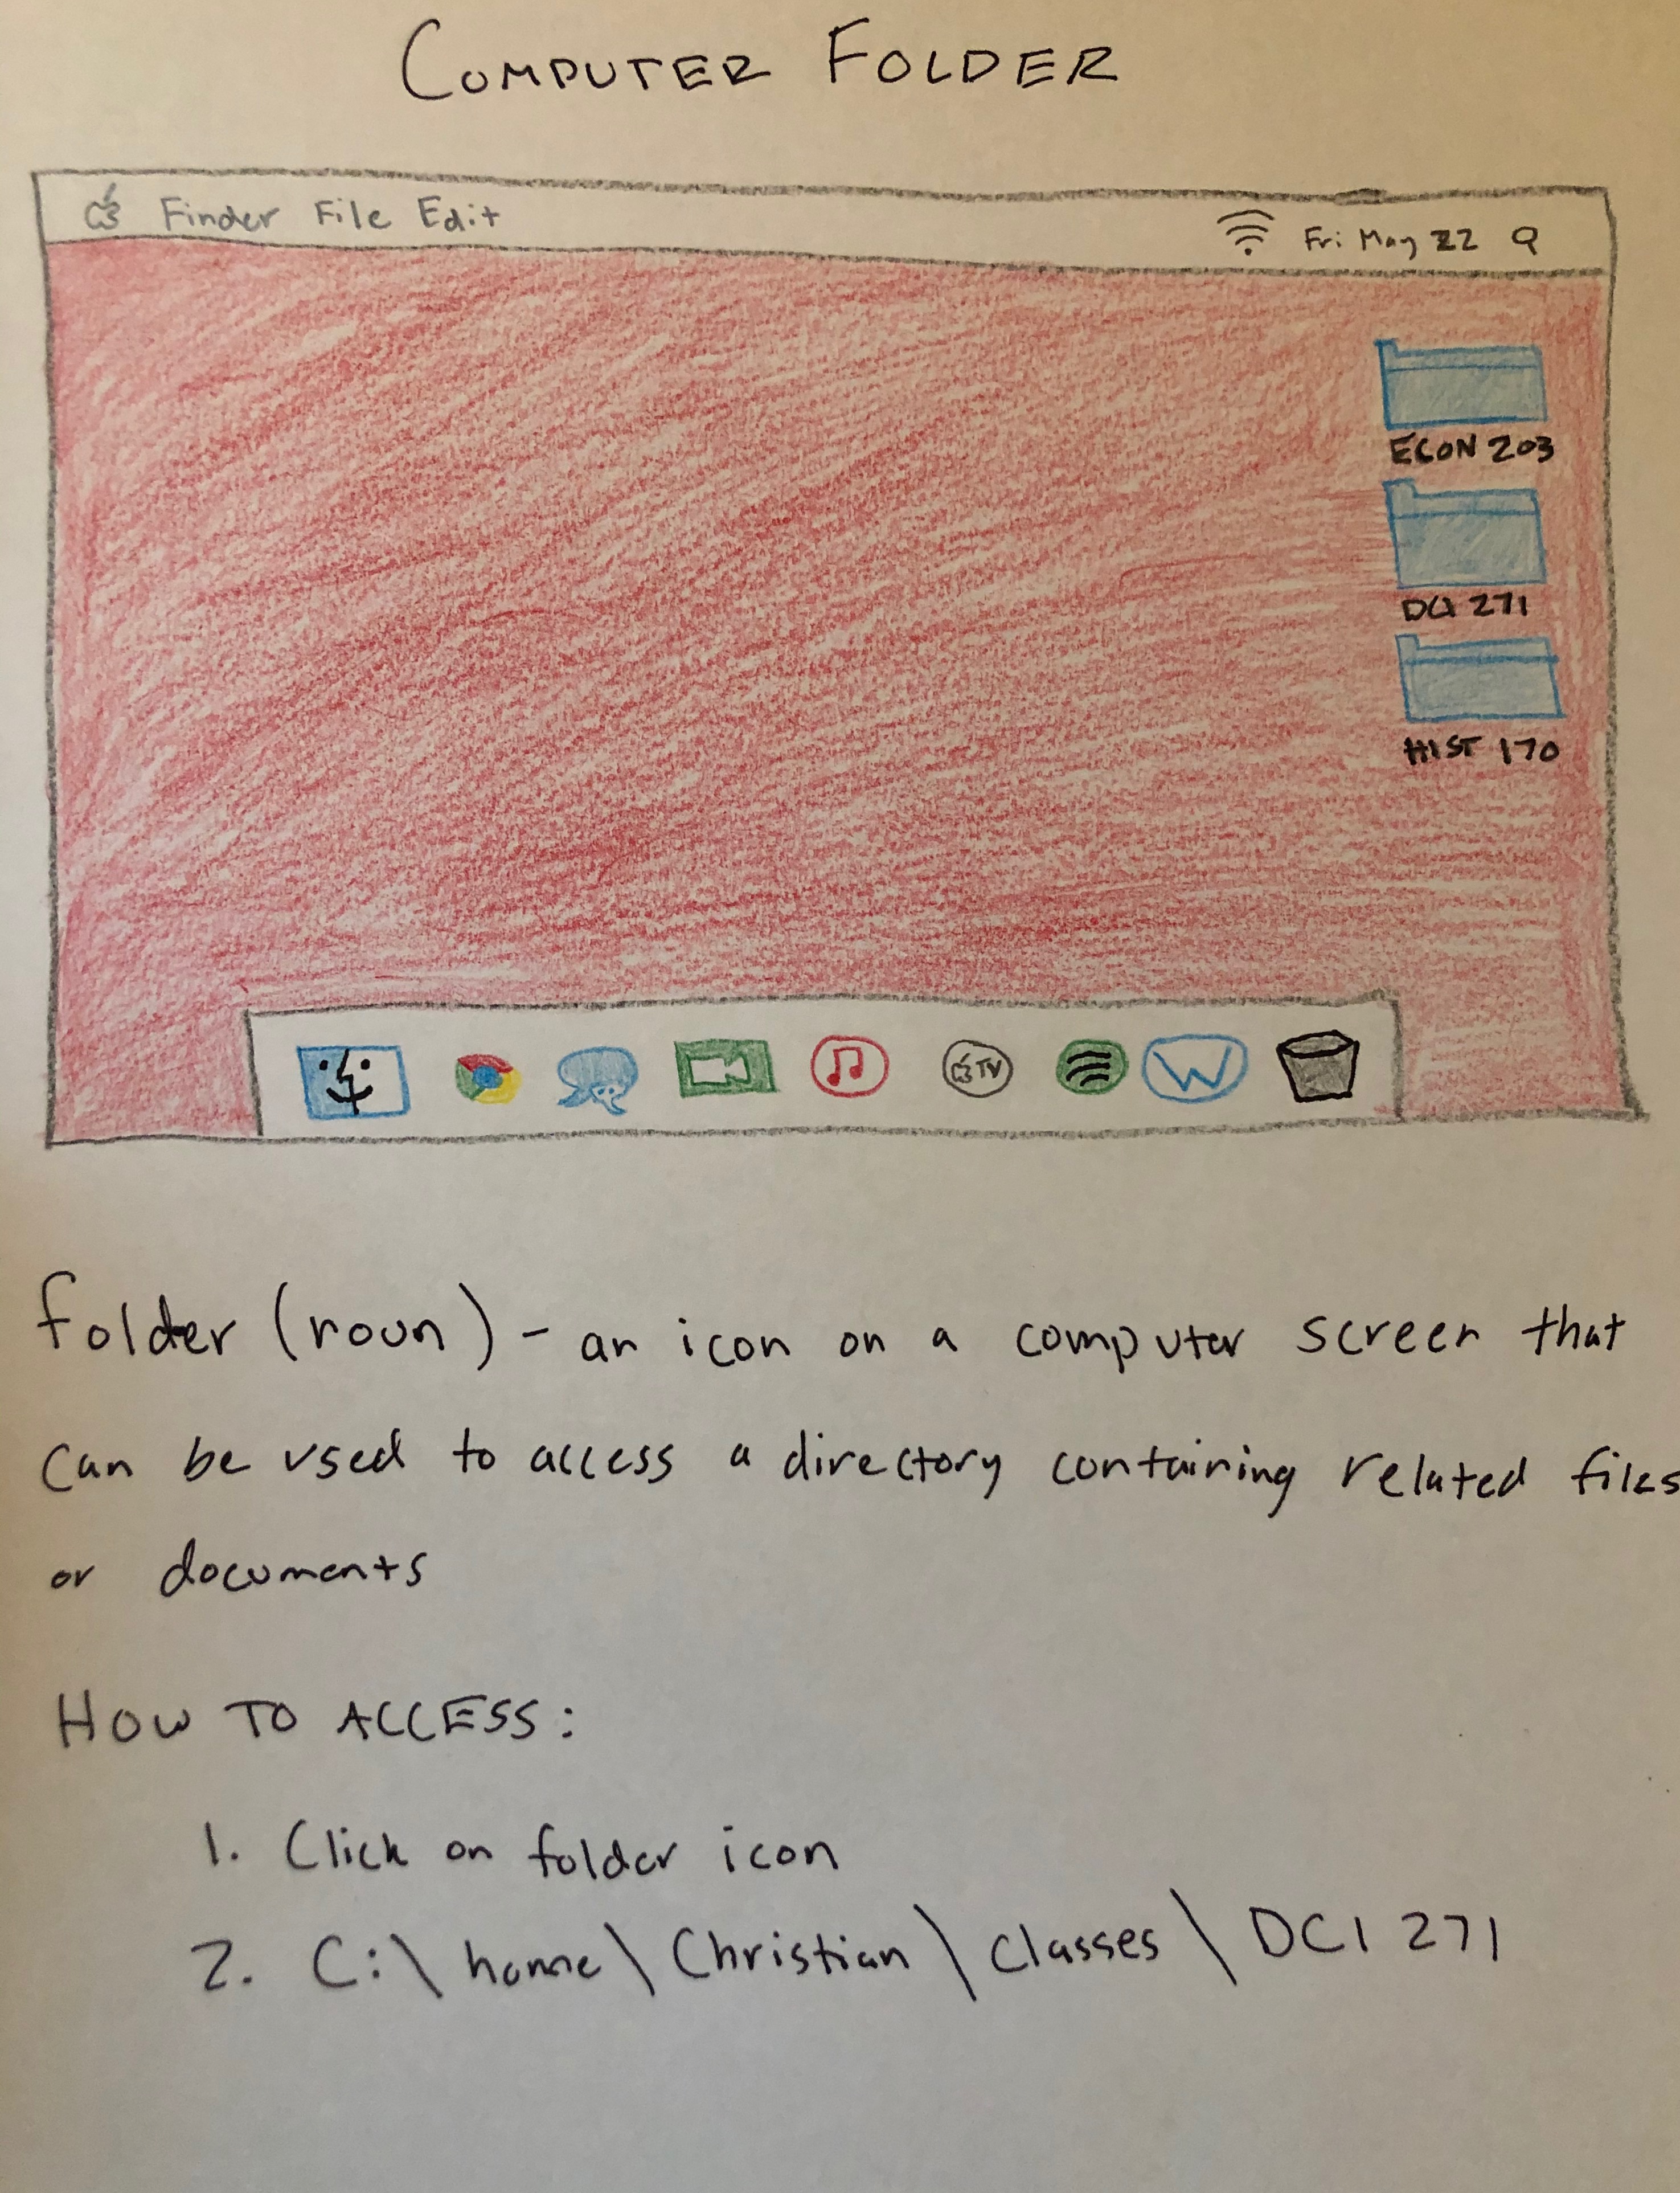 COMPUTER FOLDER
Finder File Edit
Fri May 22
ECON 203
DCI 271
HIST 170
TV
W
folder (noun) - an icon on a computer screen that
can be used to access a directory containing related files
or documents
HOW TO ACCESS:
1. Click on folder icon
2. C:\home\Christian\Classes\DCI 271